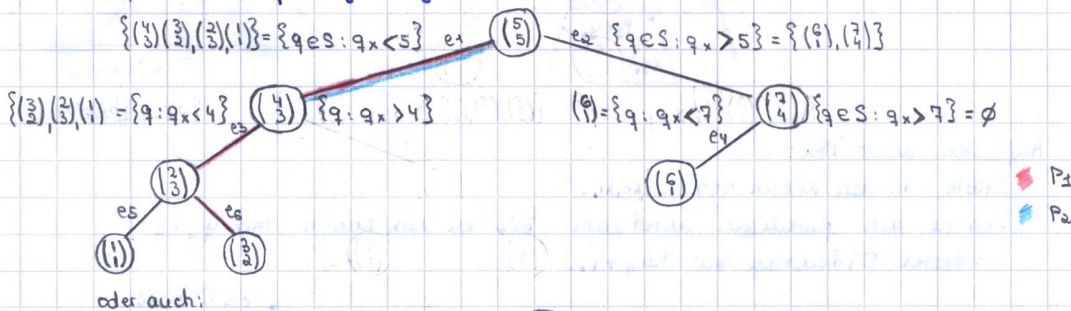 {(4 3)(3 2),(2 3),(1 1)}={q∈S: qₓ<5} e1 (5 5) e2 {q∈S: qₓ>5}={(6 1),(7 4)}
{(3 2),(2 3),(1 1) ={q: qₓ<4} e3 (4 3) {q: qₓ>4} (6 1)={q: qₓ<7} e4 (7 4) {q∈S: qₓ>7}=∅
(2 3) (6 1) P1
e5 e6 P2
(1 1) (3 2)
oder auch: